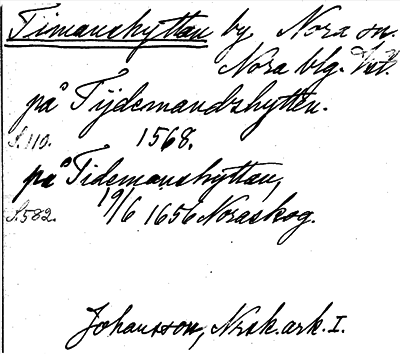 Timanshyttan by Nora sn.
Nora blg. Vstl.
på Tijdemandzhytten.
S.110. 1568.
på Tidemanshyttan,
S.582. 19/6 1656 Noraskog.
Johansson, Nrsk. ark. I.